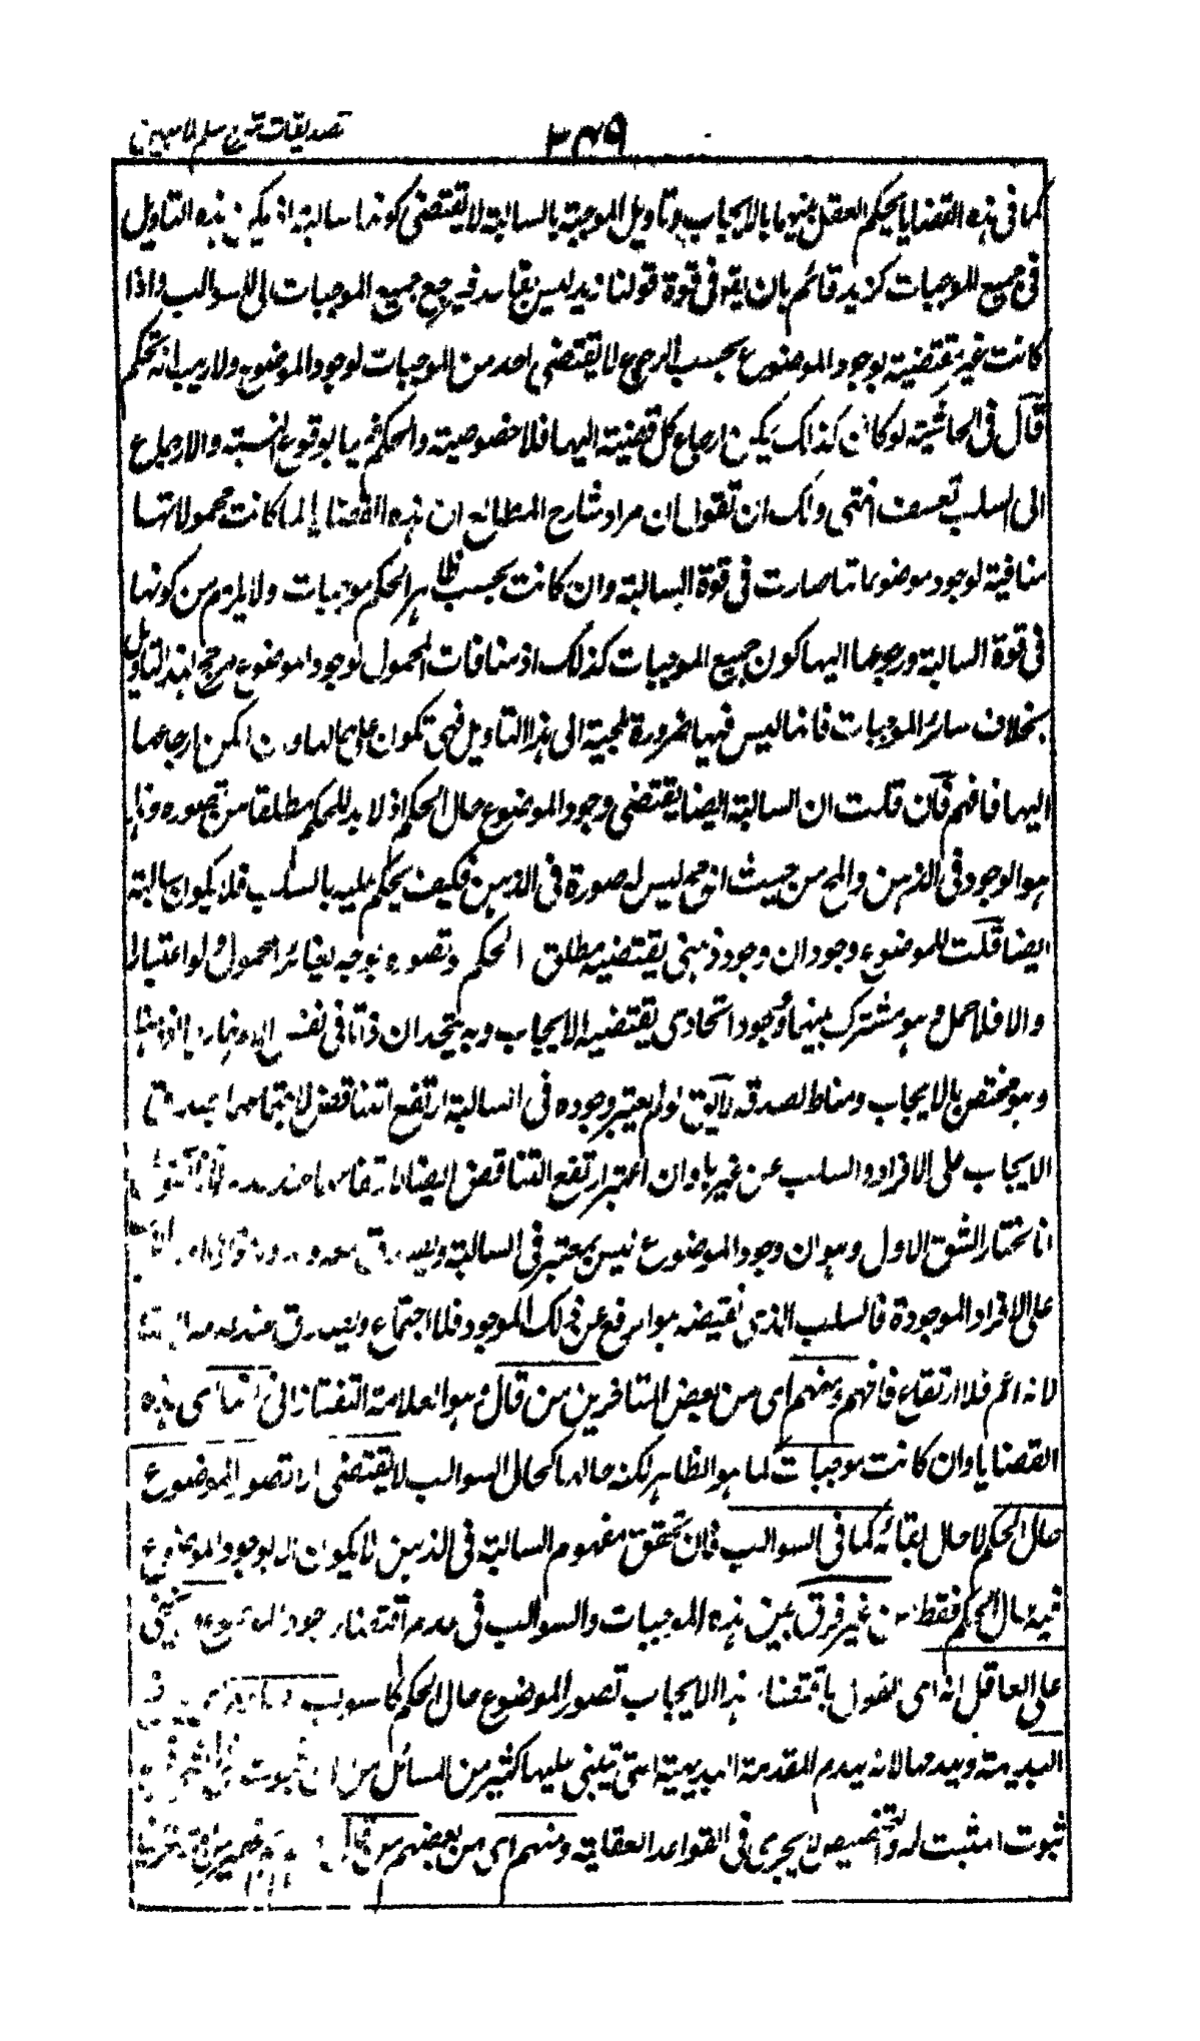 ٢٤٩
تصديقات شرح سلم لملا مبين
كما فى هذه القضايا يحكم العقل فيها بالايجاب وتاويل الموجبة بالسالبة لا يقتضى كونها سالبة اذ يمكن هذه التاويل
فى جميع الموجبات كزيد قائم بان يقو فى قوة قولنا زيد ليس بقاعد فيرجع جميع الموجبات الى السوالب واذا
كانت غير مقتضية لوجود الموضوع بحسب الرجوع لا يقتضى احد من الموجبات لوجود الموضوع ولا ريب انه تحكم
قال فى الحاشية لو كان كذلك يمكن ارجاع كل قضية اليها فلا خصوصية والحكم فيها بوقوع النسبة والارجاع
الى السلب تعسف انتهى ولك ان تقول ان مراد شارح المطالع ان هذه القضايا لما كانت محمولاتها
منافية لوجود موضوعاتها صارت فى قوة السالبة وان كانت بحسب ظاهر الحكم موجبات ولا يلزم من كونها
فى قوة السالبة ورجوعها اليها كون جميع الموجبات كذلك اذ منافات المحمول لوجود الموضوع مرجح لهذا التاويل
بخلاف سائر الموجبات فانها ليس فيها ضرورة ملجية الى هذا التاويل فهى تكون على حالها وان امكن ارجاعها
اليها فافهم فان قلت ان السالبة ايضا يقتضى وجود الموضوع حال الحكم اذ لا بد للحكم مطلقا من تصوره وهذا
هو الوجود فى الذهن والمح من حيث انه مح ليس له صورة فى الذهن فكيف يحكم عليه بالسلب فلا يكون سالبة
ايضا قلت للموضوع وجودان وجود ذهنى يقتضيه مطلق الحكم وتصوره بوجه يغاير المحمول ولو اعتبارا
والا فلا حمل وهو مشترك بينهما ووجود اتحادى يقتضيه الايجاب وبه يتحدان ذاتا فى نفس الامر
وهو مختص بالايجاب ومناط لصدقه لا يق لو لم يعتبر وجوده فى السالبة ارتفع التناقض لاجتماعهما بصدق
الايجاب على الافراد والسلب عن غيرها وان اعتبر ارتفع التناقض ايضا لارتفاعهما عند عدمه
انا نختار الشق الاول وهو ان وجود الموضوع ليس بمعتبر فى السالبة
على الافراد الموجودة فالسلب الذى نقيضه هو الرفع عن ذلك الموجود فلا اجتماع ويصدق عند عدمه
لانه اعم فلا ارتفاع فافهم ومنهم اى من بعض المتاخرين من قال وهو العلامة التفتازانى انها اى هذه
القضايا وان كانت موجبات لما هو الظاهر لكنه حالها كحال السوالب لا يقتضى الا تصور الموضوع
حال الحكم لا حال بقائه كما فى السوالب فان تحقق مفهوم السالبة فى الذهن لا يكون الا بوجود الموضوع
فيه حال الحكم فقط من غير فرق بين هذه الموجبات والسوالب فى عدم اقتضاء وجود الموضوع
على العاقل انه اى القول باقتضاء هذا الايجاب تصور الموضوع حال الحكم كالسوالب
البديهة ويهدمها لانه يهدم المقدمة البديهية التى تبتنى عليها كثير من المسائل من ان ثبوت
ثبوت المثبت له والتخصيص لا يجرى فى القواعد العقلية ومنهم اى من بعضهم من قال